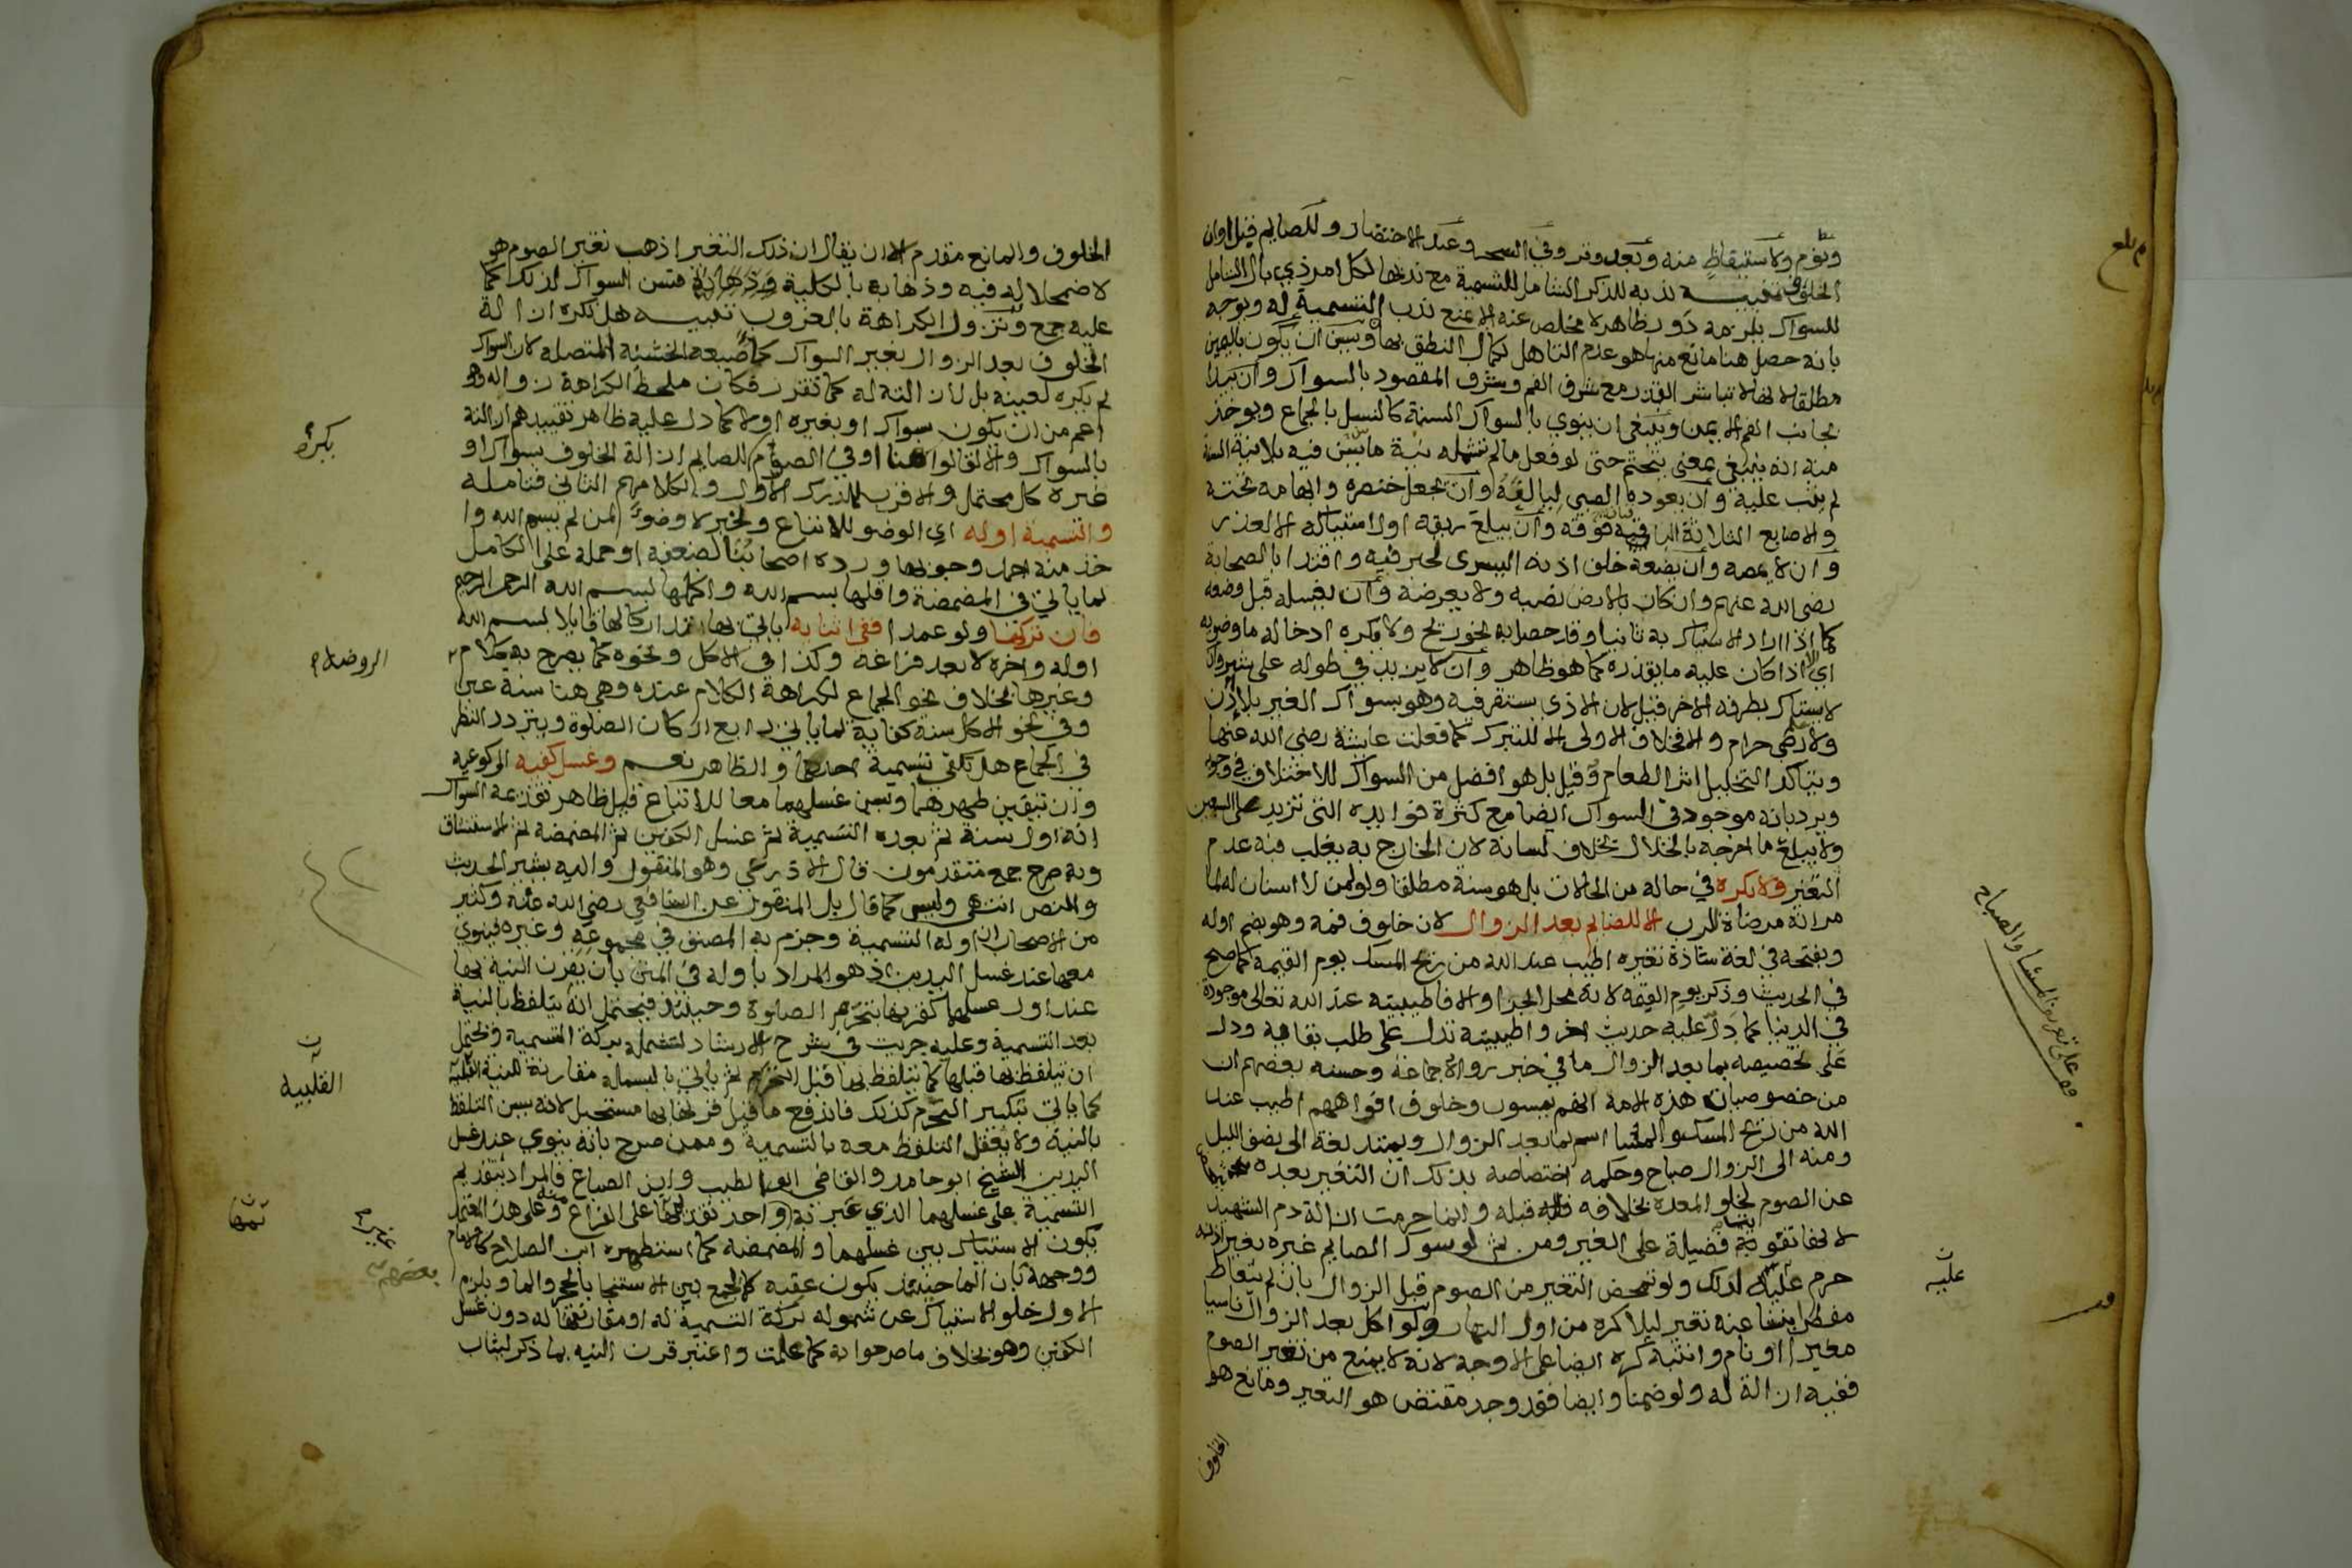 ونوم ولاستيقاظ منه وبعد وتر وفي السحر وعند الاحتضار وللصايم قبل اوان
الخلوف تنبيه ندبه للذكر الشامل للتسمية مع ندبها لكل امر ذي بال الشامل
للسواك يلزمه دور ظاهر لا مخلص عنه الا بمنع ندب التسمية له ويوجه
بانه حصل هنا مانع منها هو عدم التاهل لكمال النطق بها ويسن ان يكون باليمين
مطلقا لانها لا تباشر القذر مع شرف الفم وشرف المقصود بالسواك وان يبدا
بجانب الفم الايمن وينبغي ان ينوي بالسواك السنة كالنسل بالجماع ويوخذ
منه انه ينبغي بمعنى يتحتم حتى لو فعل مالم تشمله نية ما يسن فيه بلا نية السنة
لم يثب عليه وان يعوده الصبي ليالفه وان يجعل خنصره وابهامه تحته
والاصابع الثلاثة الباقية فوقه وان يبلع ريقه اول استياكه الا لعذر
وان لا يمصه وان يضعه خلف اذنه اليسرى لخبر فيه واقتدا بالصحابة
رضي الله عنهم وان كان بالارض نصبه ولا يعرضه وان يغسله قبل وضعه
كما اذا اراد الاستياك به ثانيا وقد حصل به نحو ريح ولا يكره ادخاله ما وضوئه
اي الا اذا كان عليه ما يقذره كما هو ظاهر وان لا يزيد في طوله على شبر وان
لا يستاك بطرفه الاخر قيل لان الاذى يستقر فيه وهو بسواك الغير بلا اذن
ولا رضى حرام والا فخلاف الاولى الا للتبرك كما فعلت عايشة رضي الله عنها
ويتاكد التخليل اثر الطعام وقيل بل هو افضل من السواك للاختلاف في وجوبه
ويرد بانه موجود في السواك ايضا مع كثرة فوايده التي تزيد على السبعين
ولا يبلع ما اخرجه بالخلال بخلاف لسانه لان الخارج به يغلب فيه عدم
التغير ولا يكره في حالة من الحالات بل هو سنة مطلقا ولو لمن لا اسنان له لما
مر انه مرضاة للرب الا للصايم بعد الزوال لان خلوف فمه وهو بضم اوله
وبفتحه في لغة شاذة تغيره اطيب عند الله من ريح المسك يوم القيمة كما صح
في الحديث وذكر يوم القيمة لانه محل الجزا والا فاطيبيته عند الله تعالى موجودة
في الدنيا كما دل عليه حديث اخر واطيبيته تدل على طلب بقائه ودل
على تخصيصه بما بعد الزوال ما في خبر رواه جماعة وحسنه بعضهم ان
من خصوصيات هذه الامة انهم يمسون وخلوف افواههم اطيب عند
الله من ريح المسك والمسا اسم لما بعد الزوال ويمتد لغة الى نصف الليل
ومنه الى الزوال صباح وحكمه اختصاصه بذلك ان التغير بعده
عن الصوم لخلو المعدة بخلافه قبله وانما حرمت ازالة دم الشهيد
لانها تفويت فضيلة على الغير ومن ثم لو سوك الصايم غيره بغير اذنه
حرم عليه لذلك ولو تمحض التغير من الصوم قبل الزوال بان لم يتعاط
مفطرا ينشا عنه تغير ليلا كره من اول النهار ولو اكل بعد الزوال ناسيا
مغيرا او نام وانتبه كره ايضا على الاوجه لانه لا يمنع من تغير الصوم
ففيه ازالة له ولو ضمنا وايضا فقد وجد مقتض هو التغير ومانع هو
الخلوف
بلغ
وعلى تعريف المسا والصباح
عليه
الخلوف والمانع مقدم الا ان يقال ان ذلك التغير اذهب تغير الصوم هو
لاضمحلاله فيه وذهابه بالكلية فسن السواك لذلك كما
عليه جمع وتزول الكراهة بالغروب تنبيه هل تكره ازالة
الخلوف بعد الزوال بغير السواك كاصبعه الخشنة المتصلة لان السواك
لم يكره لعينه بل لازالته له كما تقرر فكان ملحظ الكراهة زواله وهو
اعم من ان يكون بسواك او بغيره او لا كما دل عليه ظاهر تقييدهم ازالته
بالسواك والا لقالوا هنا او في الصوم للصايم ازالة الخلوف بسواك او
غيره كل محتمل والاقرب للمدرك الاول ولكلامهم الثاني فتامله
والتسمية اوله اي الوضو للاتباع ولخبر لا وضو لمن لم يسم الله وا
خذ منه احمد وجوبها ورده اصحابنا لضعفه او حمله على الكامل
لما ياتي في المضمضة واقلها بسم الله واكملها بسم الله الرحمن الرحيم
فان تركها ولو عمدا ففي اثنايه ياتي بها تداركا لها قايلا بسم الله
اوله واخره لا بعد فراغه وكذا في الاكل ونحوه كما يصرح به كلام
وغيرها بخلاف نحو الجماع لكراهة الكلام عنده وهي هنا سنة عين
وفي نحو الاكل سنة كفاية لما ياتي رابع اركان الصلوة ويتردد النظر
في الجماع هل يكفي تسمية احدهما والظاهر نعم وغسل كفيه الى كوعيه
وان تيقن طهرهما ويسن غسلهما معا للاتباع قيل ظاهر تقديمه السواك
انه اول سنة ثم بعده التسمية ثم غسل الكفين ثم المضمضة ثم الاستنشاق
وبه صرح جمع متقدمون قال الاذرعي وهو المنقول واليه يشير الحديث
والنص انتهى وليس كما قال بل المنقول عن الشافعي رضي الله عنه وكثير
من الاصحاب ان اوله التسمية وجزم به المصنف في مجموعه وغيره فينوي
معها عند غسل اليدين اذ هو المراد باوله في المتن بان يقرن النية بها
عند اول غسلهما كقرنها بتحرم الصلوة وحينئذ فيحتمل انه يتلفظ بالنية
بعد التسمية وعليه جريت في شرح الارشاد لتشمله بركة التسمية ويحتمل
ان يتلفظ بها قبلها كما يتلفظ بها قبل التحرم ثم ياتي بالبسملة مقارنة للنية القلبية
كما ياتي بتكبير التحرم كذلك فاندفع ما قيل قرنها بها مستحيل لانه يسن التلفظ
بالنية ولا يعقل التلفظ معه بالتسمية وممن صرح بانه ينوي عند غسل
اليدين الشيخ ابو حامد والقاضي ابو الطيب وابن الصباغ فالمراد بتقديم
التسمية على غسلهما الذي عبر به واحد تقديمها على الفراغ منه وعلى هذا المعتمد
يكون الاستياك بين غسلهما والمضمضة كما استظهره ابن الصلاح كالامام
ووجهه بان الما حينئذ يكون عقبه كالجمع بين الاستنجا بالحجر والما ويلزم
الاول خلو الاستياك عن شموله بركة التسمية له او مقارنتها له دون غسل
الكفين وهو بخلاف ما صرحوا به كما علمت واعتبر قرن النيه بما ذكر ليثاب
يكره
الروضة
القلبيه
غيرها
بعضهم